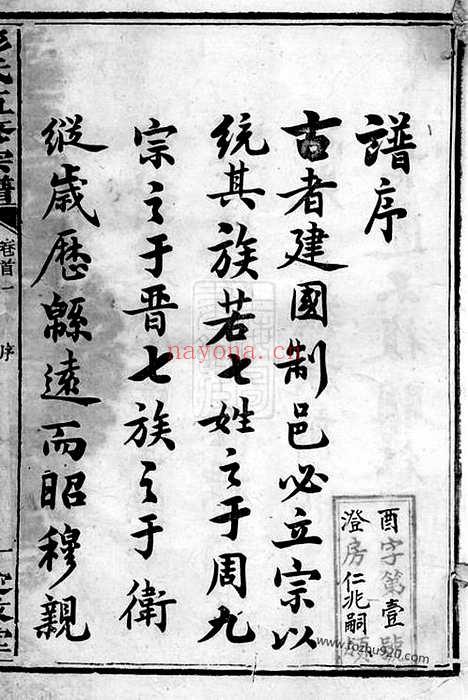 譜序
古者建國制邑必立宗以
統其族若七姓之于周九
宗之于晋七族之于衛
縱歲歷緜遠而昭穆親
氏五修宗譜
卷首一
序
酉字第壹號
澄房仁兆嗣領
nayona.cn
www.fozhu920.com